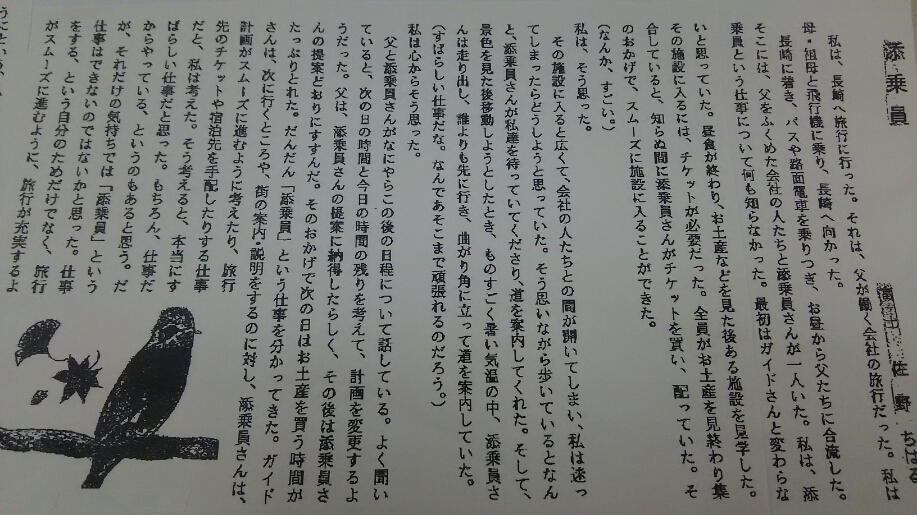 添乗員
佐野 ちはる
私は、長崎へ旅行に行った。それは、父が働く会社の旅行だった。私は
母・祖母と飛行機に乗り、長崎へ向かった。
長崎に着き、バスや路面電車を乗りつぎ、お昼から父たちに合流した。
そこには、父をふくめた会社の人たちと添乗員さんが一人いた。私は、添
乗員という仕事について何も知らなかった。最初はガイドさんと変わらな
いと思っていた。昼食が終わり、お土産などを見た後ある施設を見学した。
その施設に入るには、チケットが必要だった。全員がお土産を見終わり集
合していると、知らぬ間に添乗員さんがチケットを買い、配っていた。そ
のおかげで、スムーズに施設に入ることができた。
(なんか、すごい。)
私は、そう思った。
その施設に入ると広くて、会社の人たちとの間が開いてしまい、私は迷っ
てしまったらどうしようと思っていた。そう思いながら歩いているとなん
と、添乗員さんが私達を待っていてくださり、道を案内してくれた。そして、
景色を見た後移動しようとしたとき、ものすごく暑い気温の中、添乗員さ
んは走り出し、誰よりも先に行き、曲がり角に立って道を案内していた。
(すばらしい仕事だな。なんであそこまで頑張れるのだろう。)
私は心からそう思った。
父と添乗員さんがなにやらこの後の日程について話している。よく聞い
ていると、次の日の時間と今日の時間の残りを考えて、計画を変更するよ
うだった。父は、添乗員さんの提案に納得したらしく、その後は添乗員さ
んの提案どおりにすすんだ。そのおかげで次の日はお土産を買う時間が
たっぷりとれた。だんだん「添乗員」という仕事を分かってきた。ガイド
さんは、次に行くところや、街の案内・説明をするのに対し、添乗員さんは、
計画がスムーズに進むように考えたり、旅行
先のチケットや宿泊先を手配したりする仕事
だと、私は考えた。そう考えると、本当にす
ばらしい仕事だと思った。もちろん、仕事だ
からやっている、というのもあると思う。だ
が、それだけの気持ちでは「添乗員」という
仕事はできないのではないかと思った。仕事
をする、という自分のためだけでなく、旅行
がスムーズに進むように、旅行が充実するよ